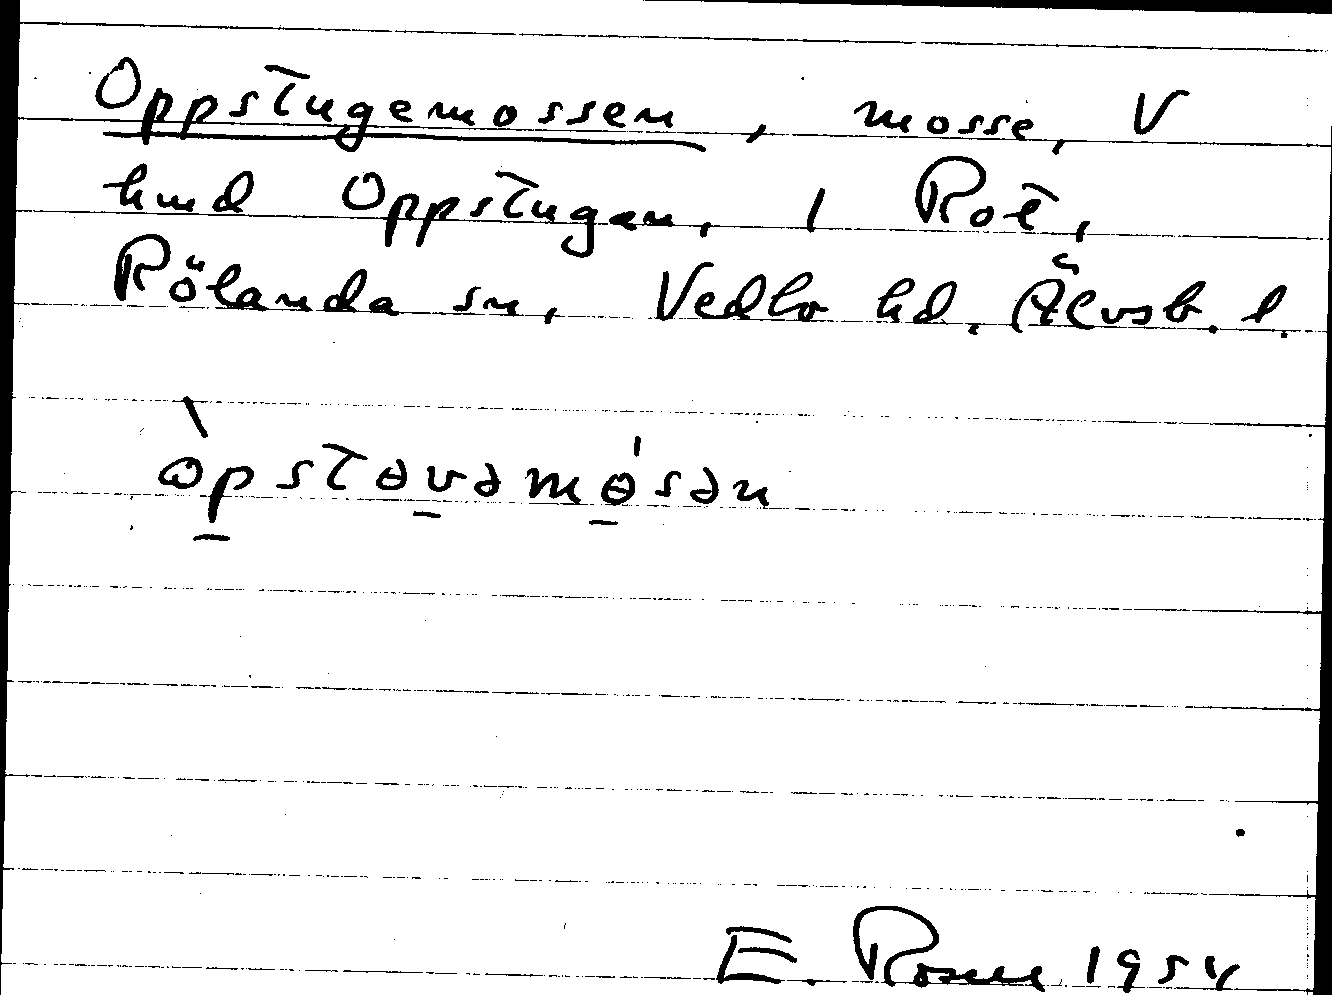 Oppstugemossen, mosse, V
hmd Oppstugan, 1 Rot,
Rölanda sn, Vedbo hd. Älvsb. l.
òpstɵvəmɵ́sən
E. Rosell 1954